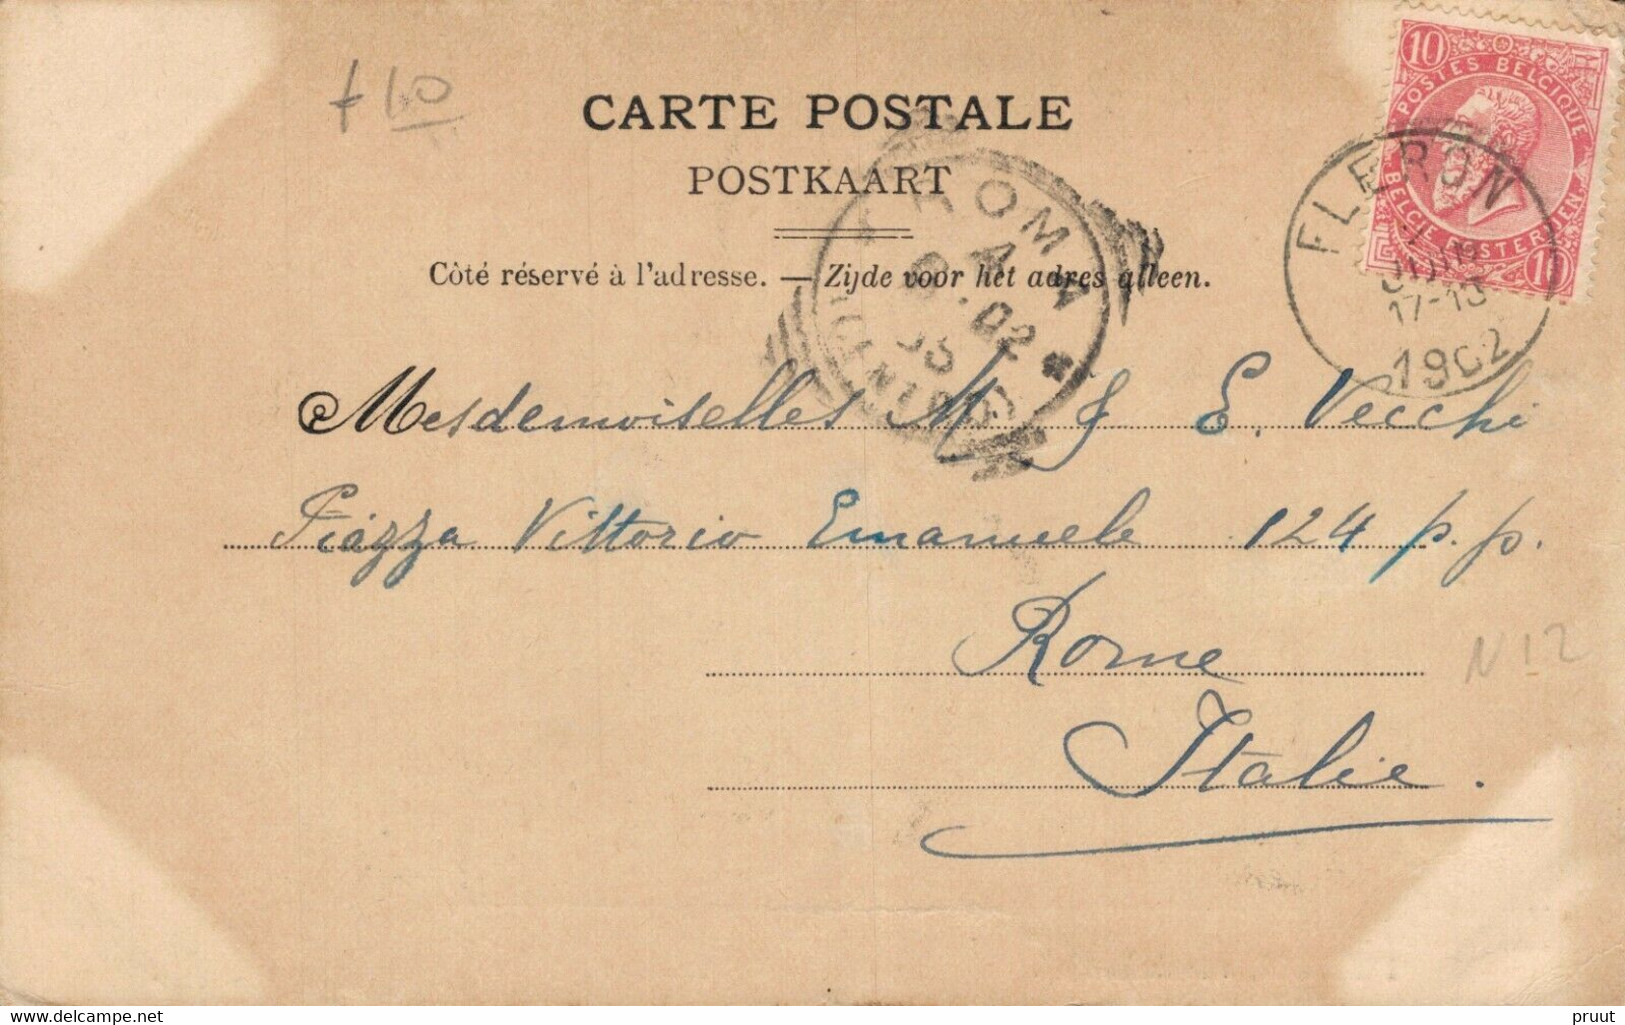 10
POSTES BELGIQUE
BELGIE POSTERIJEN
10
+ 10
CARTE POSTALE
POSTKAART
Côté réservé à l'adresse. — Zijde voor het adres alleen.
FLERON
17-18
1902
ROMA
02
Mesdemoiselles M. & E. Vecchi
Piazza Vittorio Emanuele 124 p. p.
Rome
N 12
Italie.
delcampe.net
pruut